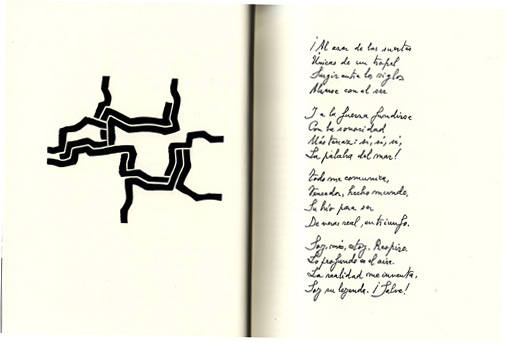 ¡Al azar de las suertes
Únicas de un tropel
Surgir entre los siglos
Alzarse con el ser
Y a la fuerza fundirse
Con la sonoridad
Más tenaz: sí, sí, sí,
La palabra del mar!
Todo me comunica,
Vencedor, hecho mundo,
Su brío para ser
De veras real, en triunfo.
Soy, más, estoy. Respiro.
Lo profundo es el aire.
La realidad me inventa,
Soy su leyenda. ¡Salve!